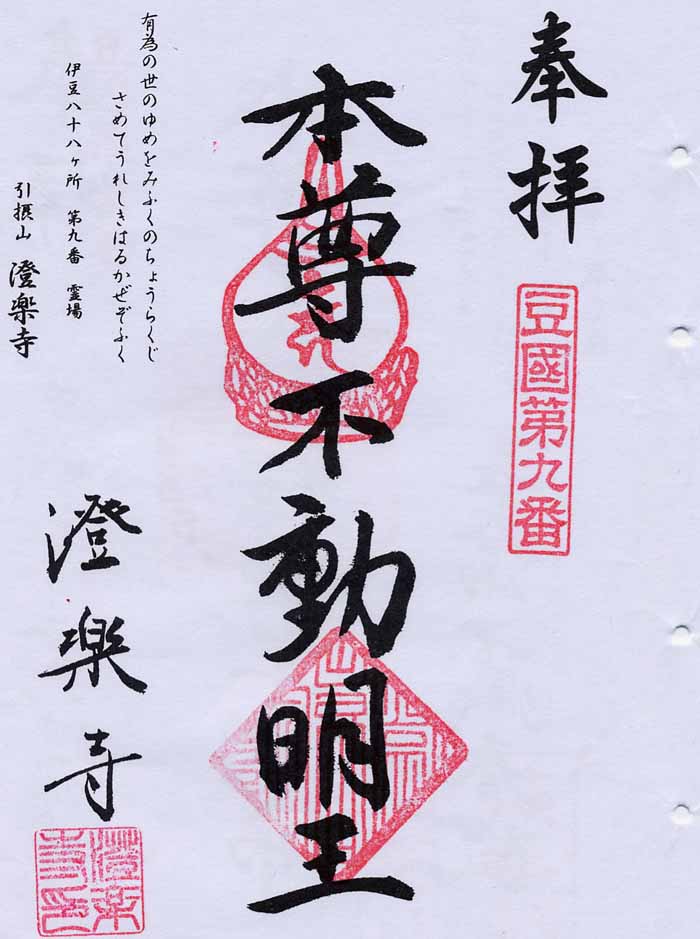 奉拝
豆國第九番
本尊不動明王
有為の世のゆめをみふくのちょうらくじ
さめてうれしきはるかぜぞふく
伊豆八十八ヶ所 第九番 霊場
引摂山 澄楽寺
澄楽寺
澄楽寺印